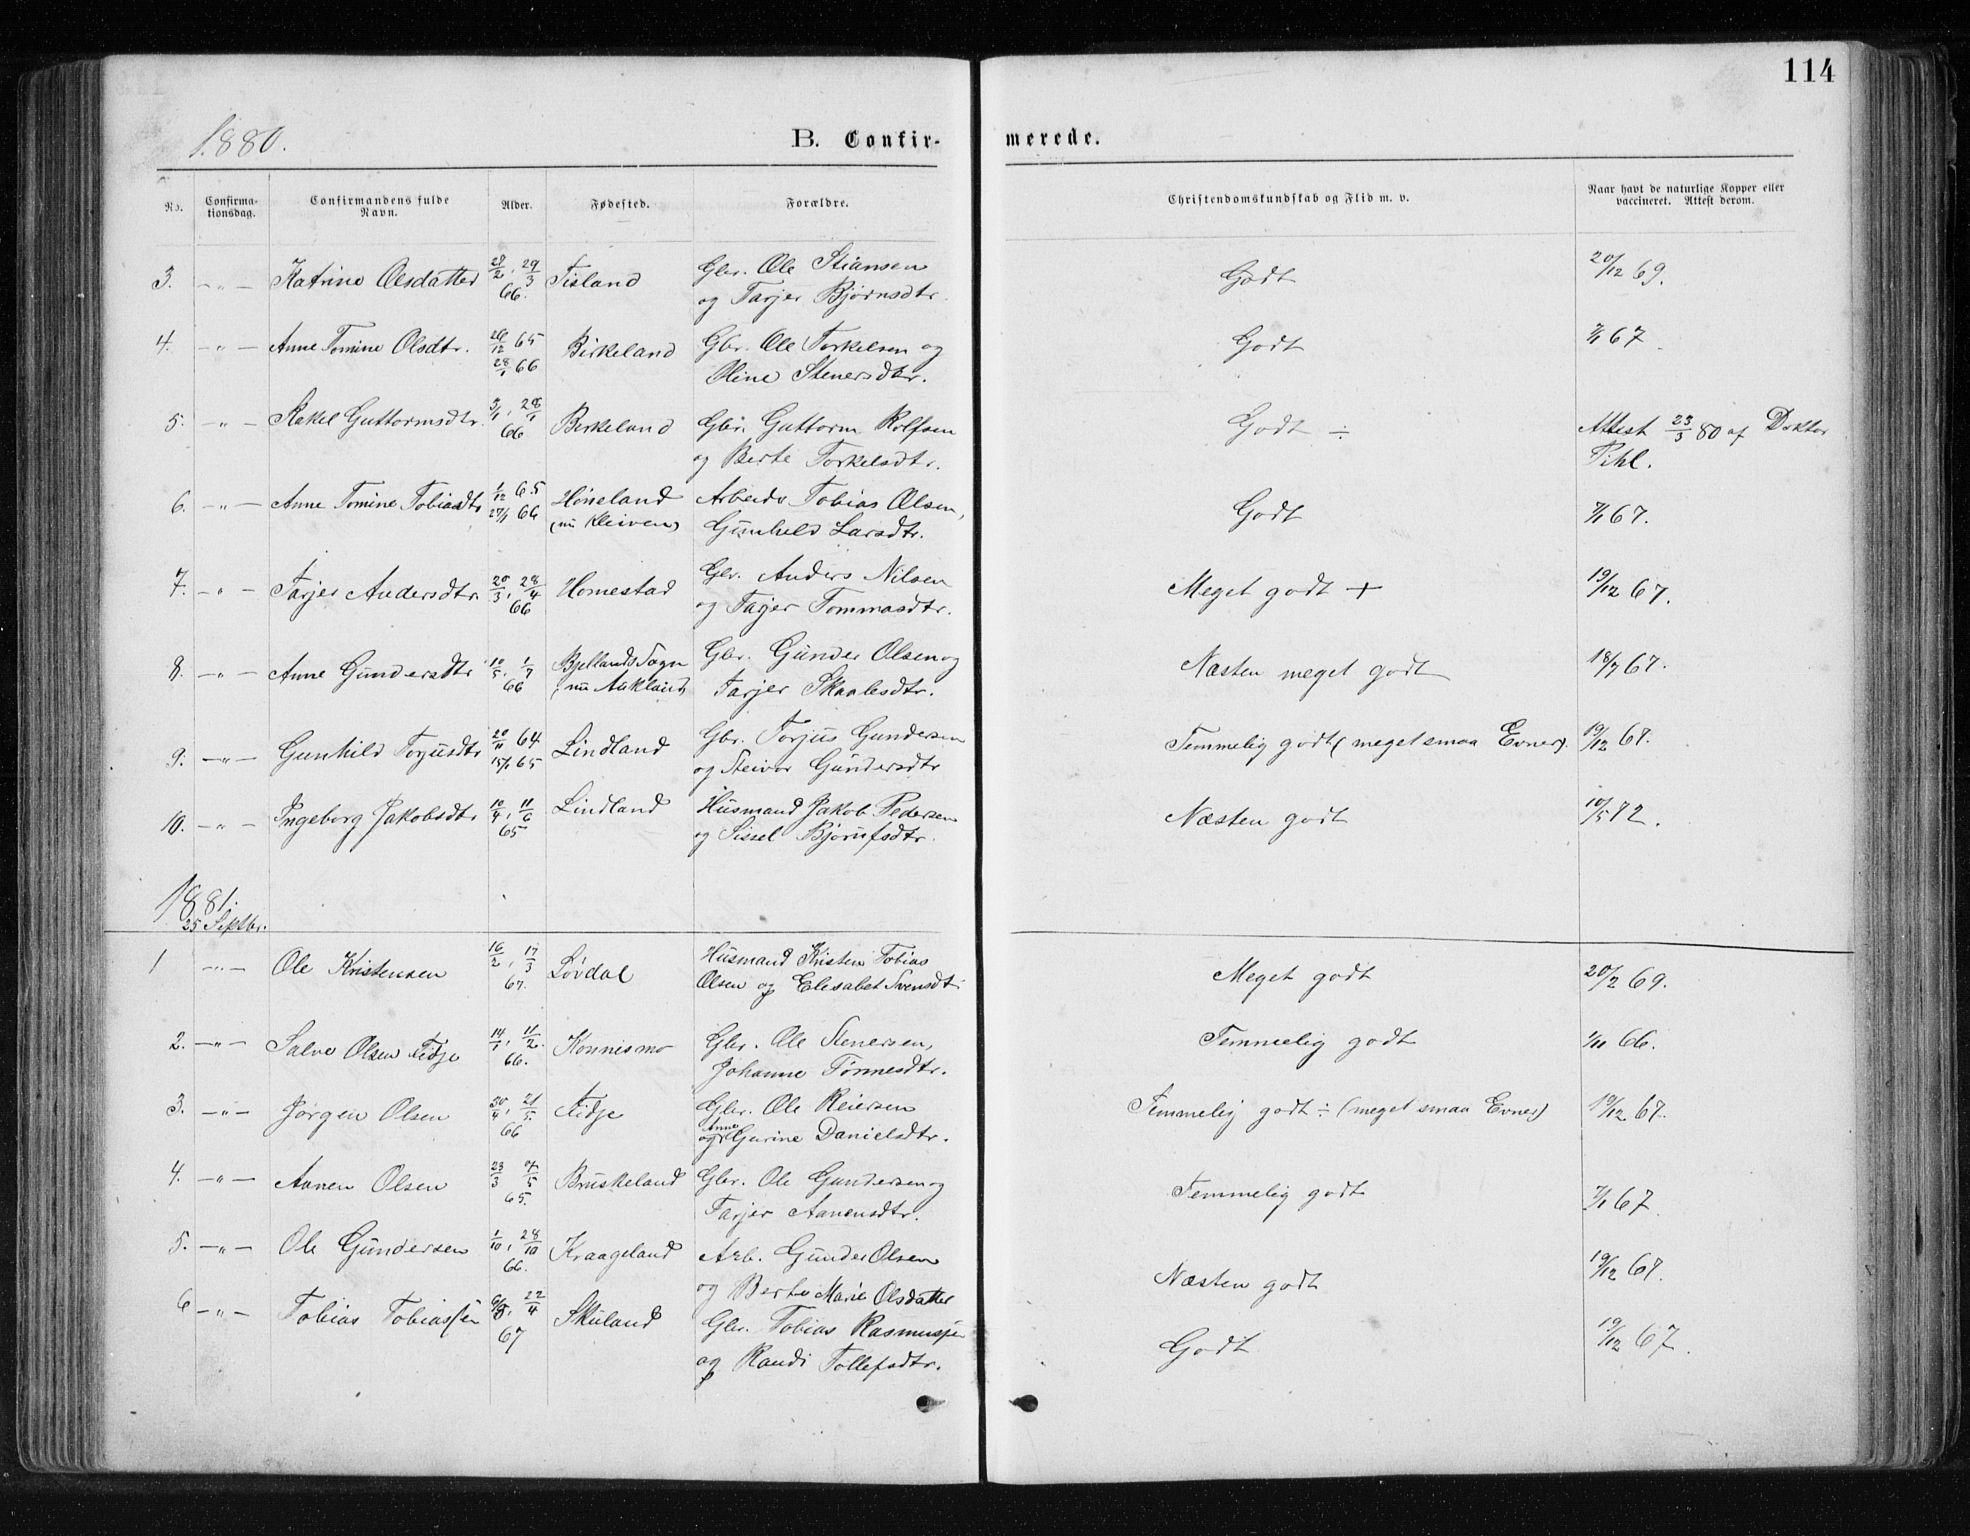 114
1880.
B. Confir- merede.
No. Confirma- tionsdag. Confirmandens fulde Navn. Alder. Fødested. Forældre. Christendomskundskab og Flid m. v. Naar havt de naturlige Kopper eller vaccineret. Attest derom.
3. -"- Katrine Olsdatter 28/2, 29/3 Tisland Gbr. Ole Stiansen Godt 20/12 69.
66. og Tarjer Bjørnsdtr.
4. -"- Anne Tomine Olsdtr. 26/12 65 Birkeland Gbr. Ole Torkelsen og Godt 7/1 67.
28/1 66 Oline Stenersdtr.
5. -"- Rakel Guttormsdtr. 3/1, 28/1 Birkeland Gbr. Guttorm Rolfsen Godt ÷ Attest 23/3 80 af Doktor
66 og Berte Torkelsdtr. Pihl.
6. -"- Anne Tomine Tobiasdtr 1/12 65 Høneland Arbeids. Tobias Olsen, Godt 7/1 67.
27/1 66 (nu Kleiven) Gunhild Larsdtr.
7. -"- Tarjer Andersdtr. 20/3, 28/4 Homestad Gbr. Anders Nilsen Meget godt + 19/12 67.
66 og Tarjer Tommasdtr.
8. -"- Anne Gundersdtr 10/5, 1/7 Bjellands Sogn Gbr. Gunder Olsen og Næsten meget godt 18/7 67.
66 (nu Aukland) Tarjer Skaalesdtr.
9. -"- Gunhild Torjusdtr 20/11 64 Lindland Gbr. Torjus Gundersen Temmelig godt (meget smaa Evner). 19/12 67.
15/1 65 og Steivor Gundersdtr
10. -"- Ingeborg Jakobsdtr 10/4, 11/6 Lindland Husmand Jakob Pedersen Næsten godt 10/5 72.
65 og Sissel Bjørnfsdtr.
1881.
25 Septbr.
1 -"- Ole Kristensen 16/2, 17/3 Løvdal Husmand Kristen Tobias Meget godt 20/2 69.
67. Olsen og Elisabet Svensdtr.
2. -"- Salve Olsen Eidje 14/1, 11/2. Konnismo Gbr. Ole Stenersen, Temmelig godt 1/11 66.
66. Johanne Tønnesdtr.
3. -"- Jørgen Olsen 30/4, 21/5 Eidje Gbr. Ole Reiersen Temmelig godt ÷ (meget smaa Evner) 19/12 67.
66 og Anne Gurine Danielsdtr.
4. -"- Aanen Olsen 23/3 7/5 Bruskeland Gbr. Ole Gundersen og Temmelig godt 7/1 67.
65. Tarjer Aanensdtr.
5. -"- Ole Gundersen 1/10, 28/10 Kraageland Arb. Gunder Olsen Næsten godt 19/12 67.
66. og Berte Marie Olsdatter
6 -"- Tobias Tobiassen 22/4 Skuland Gbr. Tobias Rasmussen Godt 19/12 67.
67 og Randi Tollefsdtr.